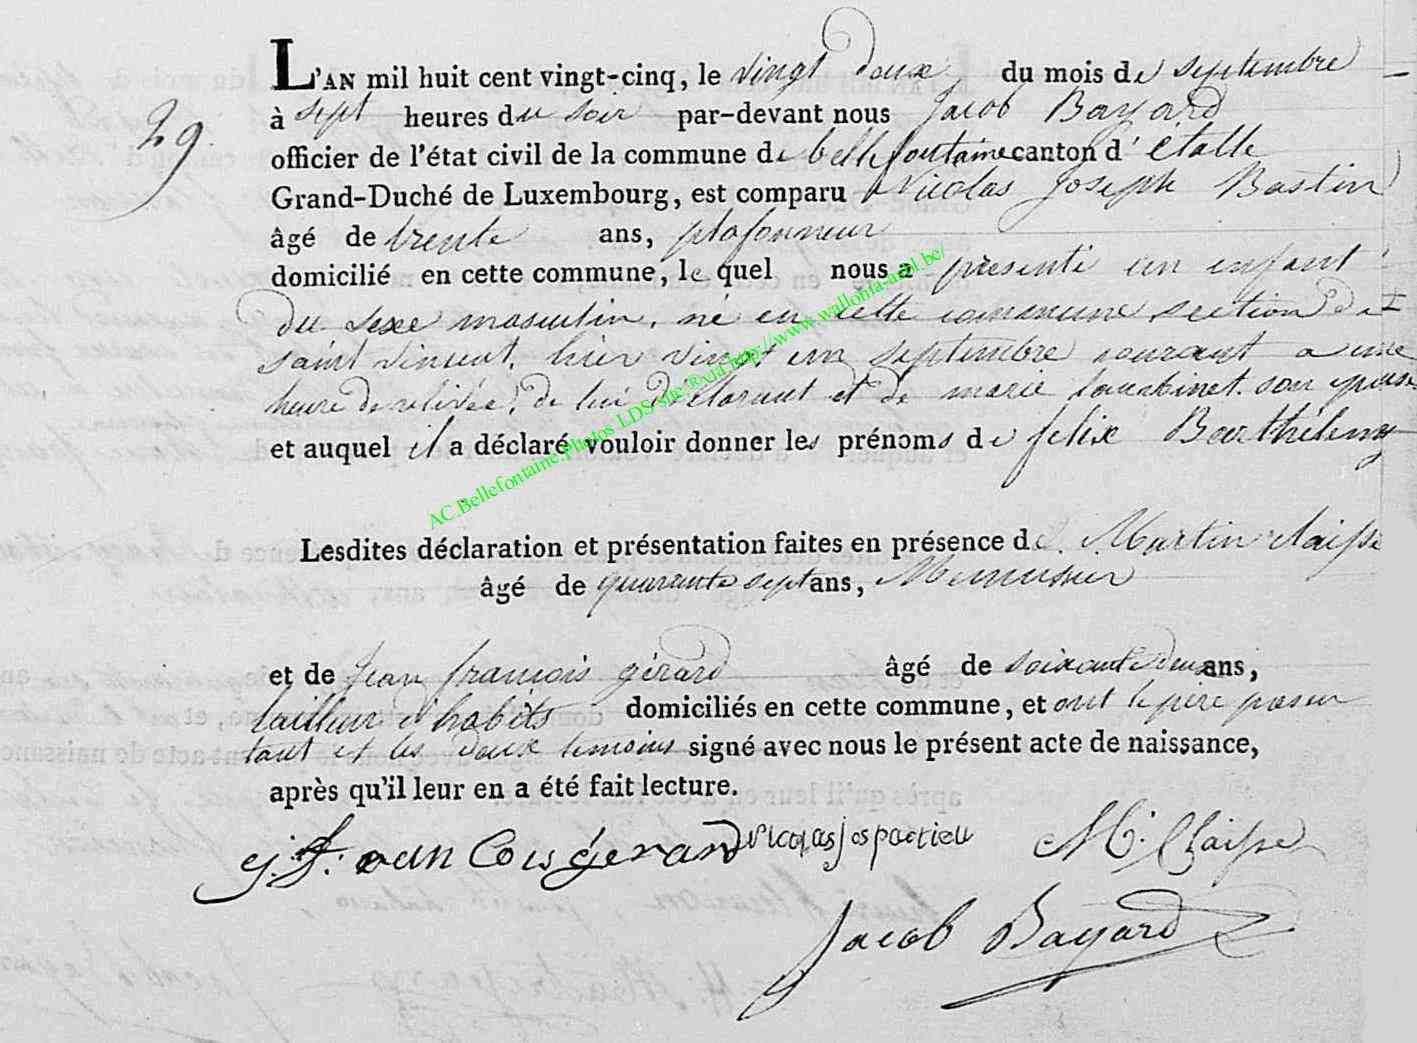 29.
L'AN mil huit cent vingt-cinq, le vingt deux du mois de septembre
à sept heures du soir par-devant nous Jacob Bayard
officier de l'état civil de la commune de bellefontaine canton d'étalle
Grand-Duché de Luxembourg, est comparu Nicolas Joseph Bastin
âgé de trente ans, plafonneur
domicilié en cette commune, le quel nous a présenté un enfant
du sexe masculin, né en cette commune section de
saint vincent, hier vingt un septembre courant a une
heure de relivée, de lui déclarant et de marie son epouse
et auquel il a déclaré vouloir donner les prénoms de felix Barthélemy
AC.Bellefontaine.Photos LDS site ®xla http://www.wallonia-asbl.be/
Lesdites déclaration et présentation faites en présence de S. Martin claisse
âgé de quarante sept ans, Menusier
et de Jean françois gérard âgé de soixante deux ans,
tailleur d'habits domiciliés en cette commune, et ont le père présen
tant et les deux temoins signé avec nous le présent acte de naissance,
après qu'il leur en a été fait lecture.
j. f. gerard nicolas jos M. Claisse
Jacob Bayard